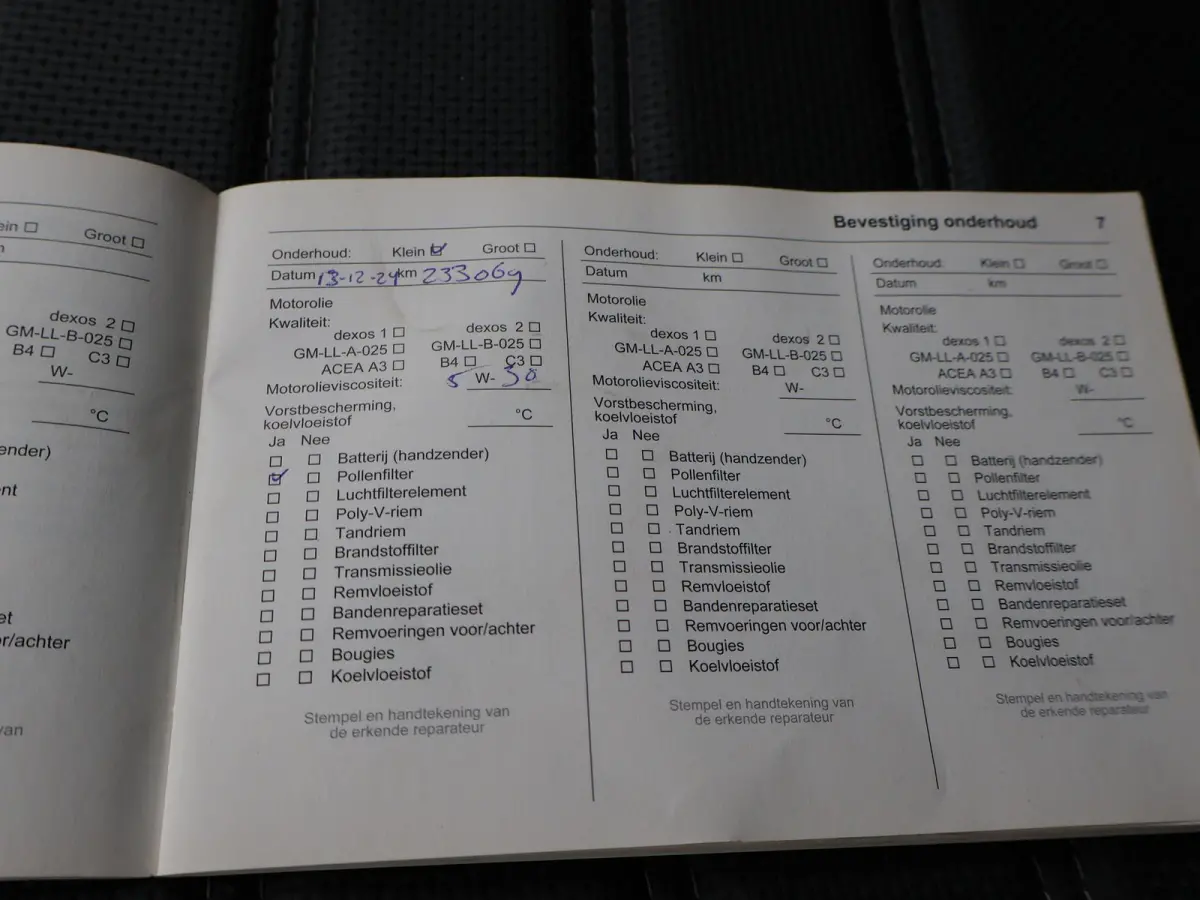 Bevestiging onderhoud 7
ein ☐ Groot ☐
dexos 2 ☐
GM-LL-B-025 ☐
B4 ☐ C3 ☐
W-
°C
ender)
nt
et
r/achter
van
Onderhoud: Klein ☑ Groot ☐
Datum 13-12-24 km 233069
Motorolie
Kwaliteit:
dexos 1 ☐ dexos 2 ☐
GM-LL-A-025 ☐ GM-LL-B-025 ☐
ACEA A3 ☐ B4 ☐ C3 ☐
Motorolieviscositeit: 5 W- 30
Vorstbescherming,
koelvloeistof °C
Ja Nee
☐ ☐ Batterij (handzender)
☑ ☐ Pollenfilter
☐ ☐ Luchtfilterelement
☐ ☐ Poly-V-riem
☐ ☐ Tandriem
☐ ☐ Brandstoffilter
☐ ☐ Transmissieolie
☐ ☐ Remvloeistof
☐ ☐ Bandenreparatieset
☐ ☐ Remvoeringen voor/achter
☐ ☐ Bougies
☐ ☐ Koelvloeistof
Stempel en handtekening van
de erkende reparateur
Onderhoud: Klein ☐ Groot ☐
Datum km
Motorolie
Kwaliteit:
dexos 1 ☐ dexos 2 ☐
GM-LL-A-025 ☐ GM-LL-B-025 ☐
ACEA A3 ☐ B4 ☐ C3 ☐
Motorolieviscositeit: W-
Vorstbescherming,
koelvloeistof °C
Ja Nee
☐ ☐ Batterij (handzender)
☐ ☐ Pollenfilter
☐ ☐ Luchtfilterelement
☐ ☐ Poly-V-riem
☐ ☐ Tandriem
☐ ☐ Brandstoffilter
☐ ☐ Transmissieolie
☐ ☐ Remvloeistof
☐ ☐ Bandenreparatieset
☐ ☐ Remvoeringen voor/achter
☐ ☐ Bougies
☐ ☐ Koelvloeistof
Stempel en handtekening van
de erkende reparateur
Onderhoud: Klein ☐ Groot ☐
Datum km
Motorolie
Kwaliteit:
dexos 1 ☐ dexos 2 ☐
GM-LL-A-025 ☐ GM-LL-B-025 ☐
ACEA A3 ☐ B4 ☐ C3 ☐
Motorolieviscositeit: W-
Vorstbescherming,
koelvloeistof °C
Ja Nee
☐ ☐ Batterij (handzender)
☐ ☐ Pollenfilter
☐ ☐ Luchtfilterelement
☐ ☐ Poly-V-riem
☐ ☐ Tandriem
☐ ☐ Brandstoffilter
☐ ☐ Transmissieolie
☐ ☐ Remvloeistof
☐ ☐ Bandenreparatieset
☐ ☐ Remvoeringen voor/achter
☐ ☐ Bougies
☐ ☐ Koelvloeistof
Stempel en handtekening van
de erkende reparateur